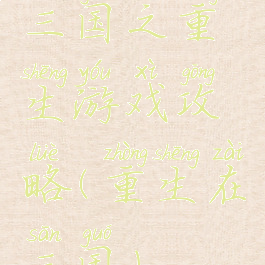 三国之重
shēng yóu xì gōng
生游戏攻
lüè zhòng shēng zài
略(重生在
sān guó
三国)